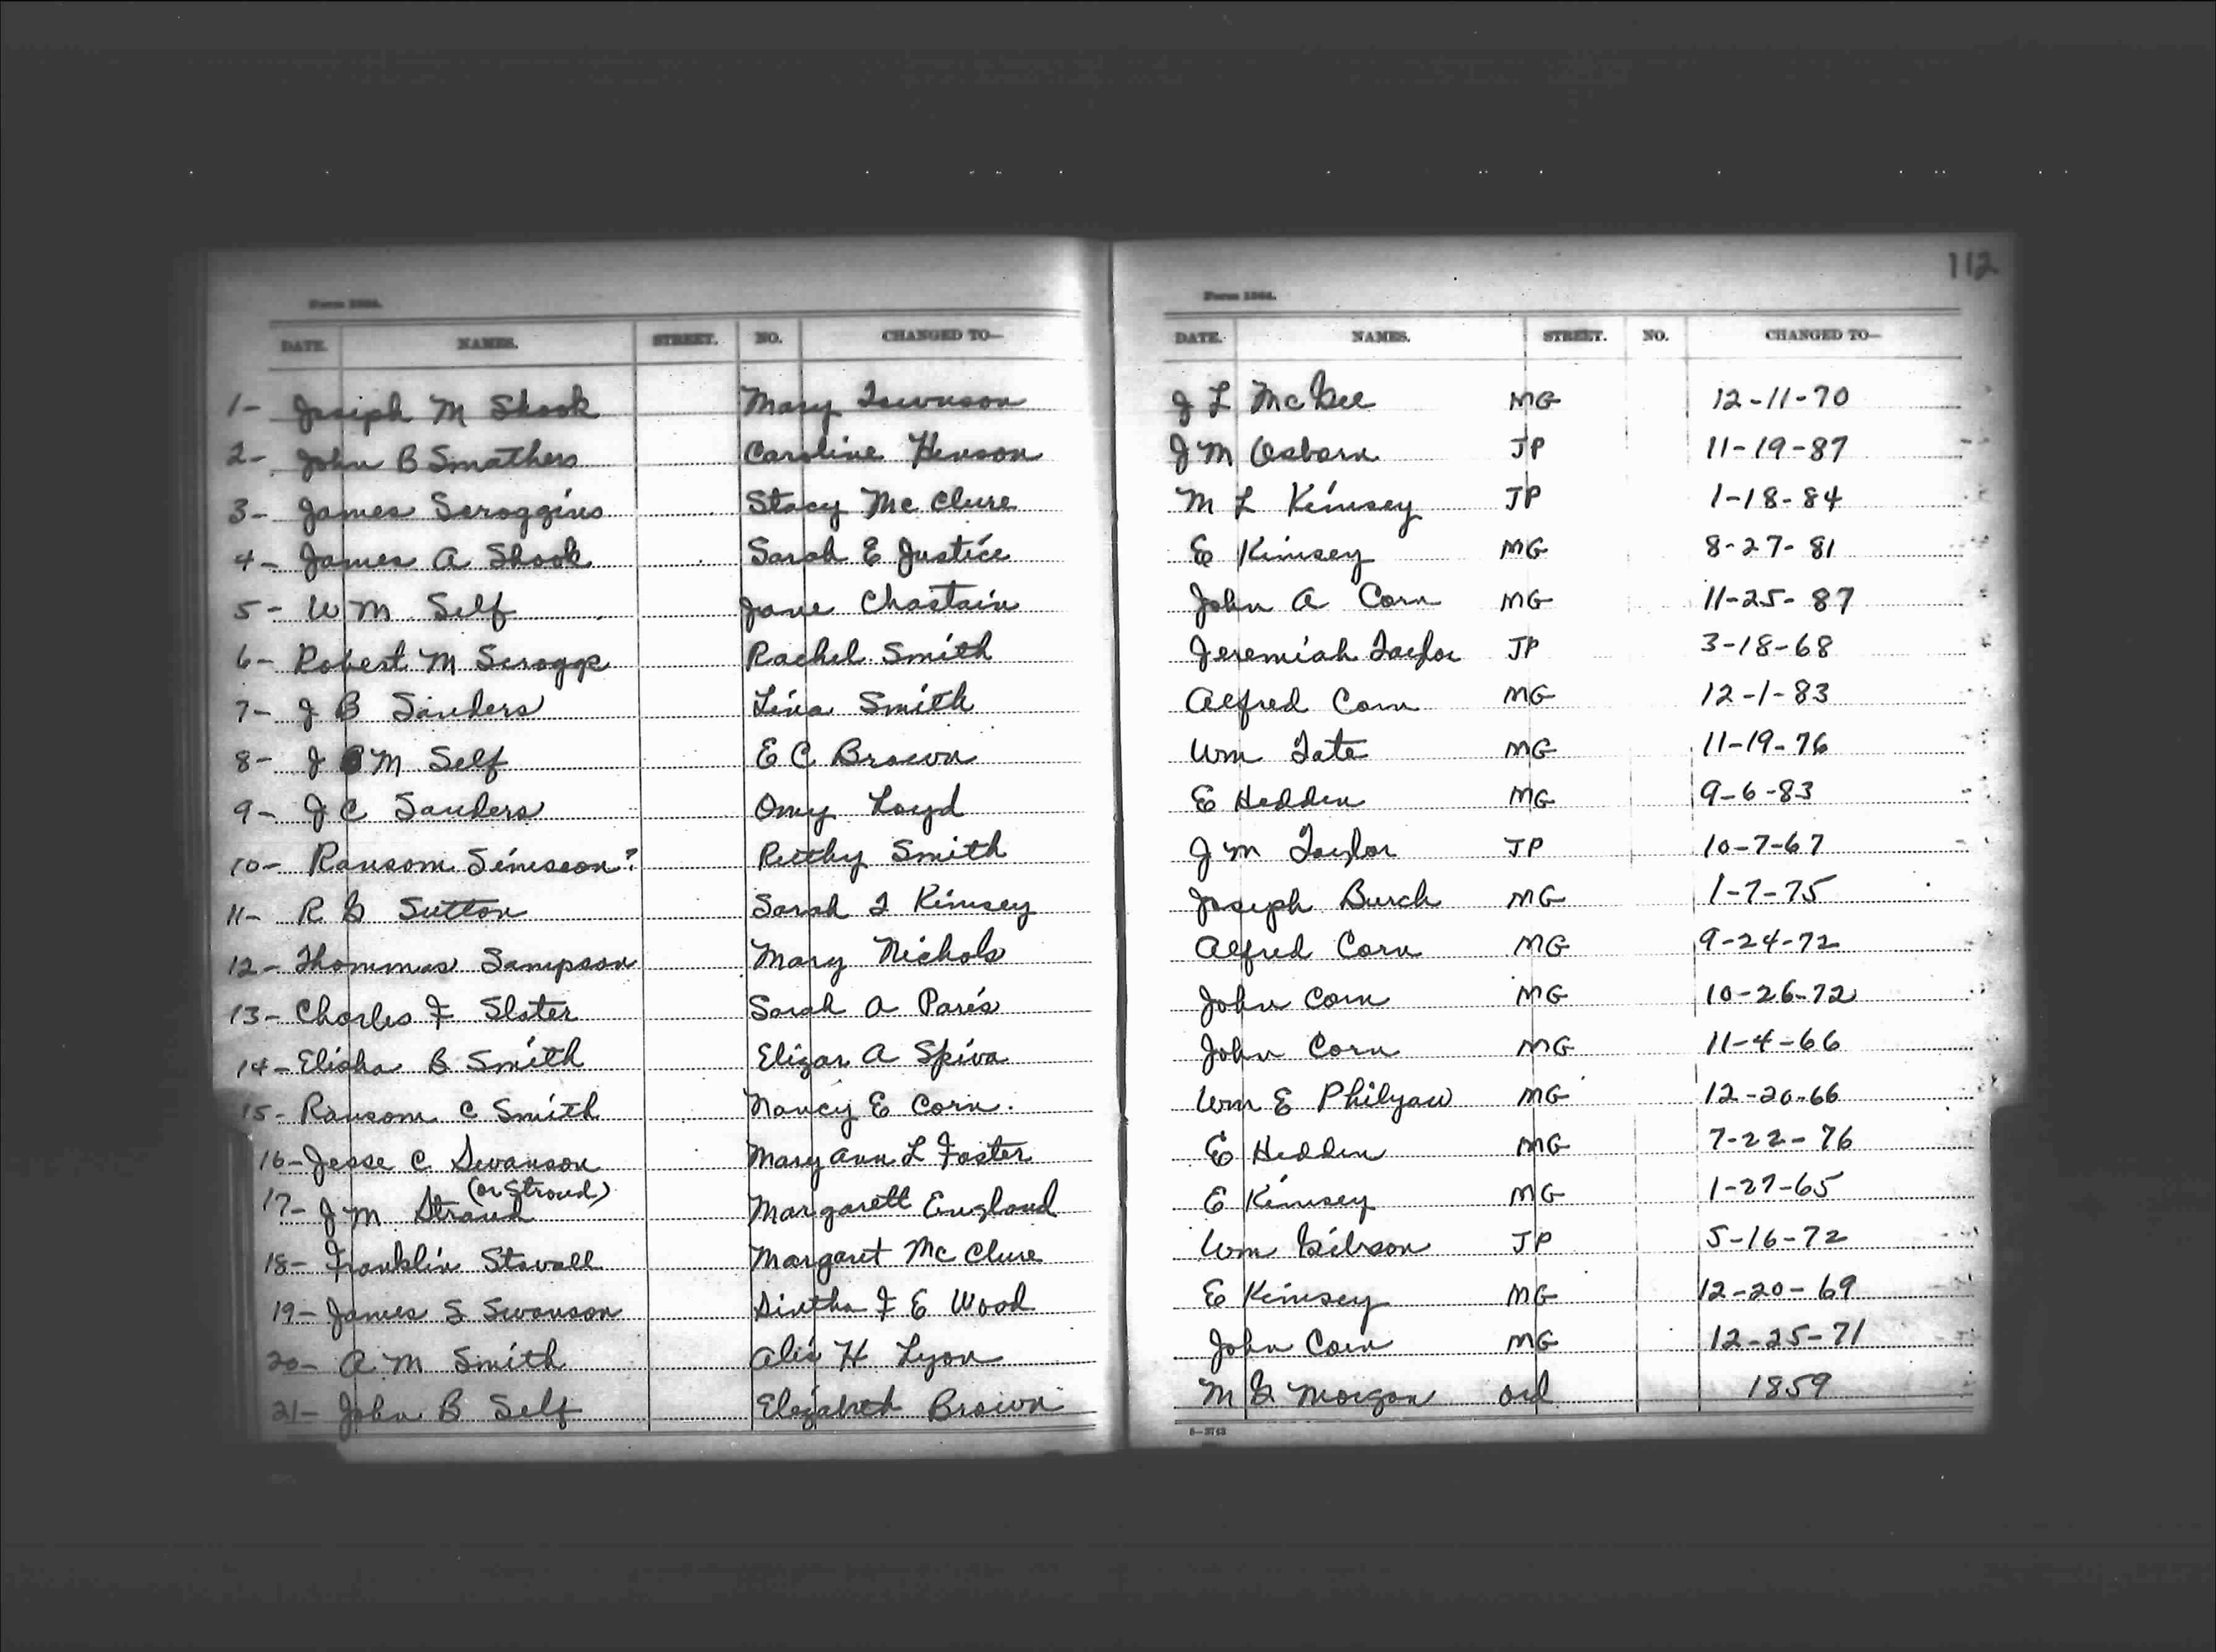 112
Form 1364. Form 1364.
DATE. NAMES. STREET. NO. CHANGED TO— DATE. NAMES. STREET. NO. CHANGED TO—
1- Joseph M Shook Mary Townson J L McGee MG 12-11-70
2- John B Smathers Caroline Henson J M Osborn JP 11-19-87
3- James Scroggins Stacy McClure M L Kimsey JP 1-18-84
4- James A Shook Sarah E Justice E Kimsey MG 8-27-81
5- W M Self Jane Chastain John A Corn MG 11-25-87
6- Robert M Scroggs Rachel Smith Jeremiah Taylor JP 3-18-68
7- J B Sanders Lina Smith Alfred Corn MG 12-1-83
8- J M Self E C Brown Wm Tate MG 11-19-76
9- J C Sanders Omy Loyd E Hedden MG 9-6-83
10- Ransom Simeson? Ruthy Smith J M Taylor JP 10-7-67
11- R G Sutton Sarah T Kimsey Joseph Burch MG 1-7-75
12- Thommas Sampson Mary Nichols Alfred Corn MG 9-24-72
13- Charles F Slater Sarah A Paris John Corn MG 10-26-72
14- Elisha B Smith Elizar A Spiva John Corn MG 11-4-66
15- Ransom C Smith Nancy E Corn. Wm E Philyaw MG 12-20-66
16- Jesse C Swanson Mary Ann L Foster E Hedden MG 7-22-76
(or Stroud)
17- J M Straud Margarett England E Kimsey MG 1-27-65
18- Franklin Stovall Margaret McClure Wm Gibson JP 5-16-72
19- James S Swanson Sintha F E Wood E Kimsey MG 12-20-69
20- A M Smith Alis H Lyon John Corn MG 12-25-71
21- John B Self Elizabeth Brown M G Morgan Ord 1859